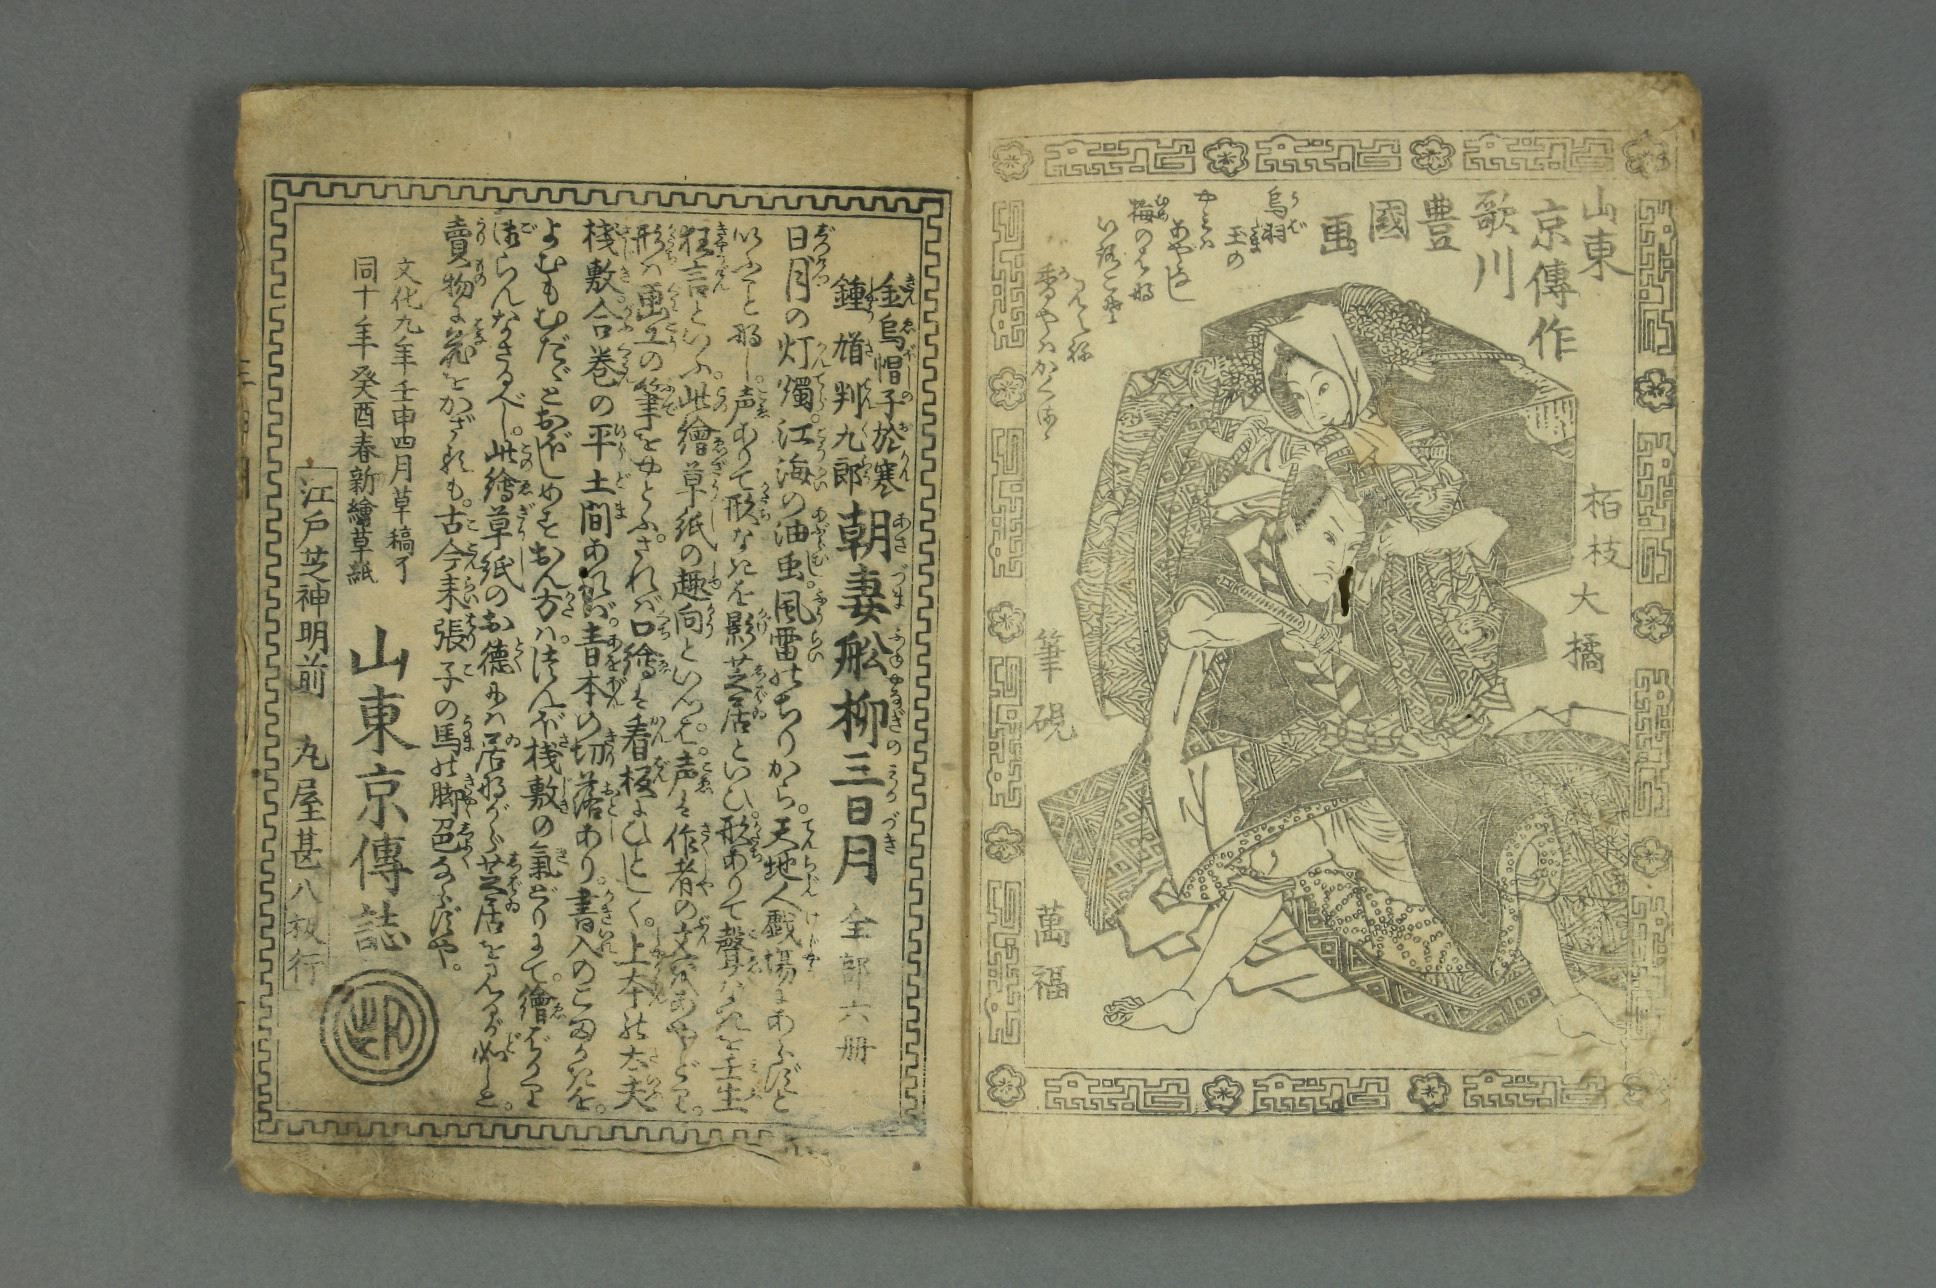 山東
京傳作
歌川
豊
國
画
烏羽
玉の
やみは
あやなし
梅のはな
いろこそ
みえね
香やはかくるゝ
栢枝大橘
筆硯
萬福
金烏帽子於寒
鍾馗判九郎
朝妻舩柳三日月 全部六册
日月の灯燭。江海の油。虫風雷のちりから。天地人戯場にあらずと
いふことなし。声ありて形なきを影芝居といひ。形ありて聲なきを壬生
狂言といふ。此繪草紙の趣向といつぱ。声は作者の文
形は画工の筆をやとふ。されば口繪は看板にひとしく。上本は太夫
棧敷合巻の平土間あれば。青本の切落あり。書入のこまかきを。
よむもむだとおぼしめすおん方は。つんぼ棧敷の氣どりにて。繪ばかり
御らんなさるべし。此繪草紙のお徳には居ながら芝居を見るが如しと。
賣物に花をかざれども。古今未張子の馬の脚色ならずや。
文化九年壬申四月草稿了
同十年癸酉春新繪草紙
山東京傳誌
江戸芝神明前 丸屋甚八板行